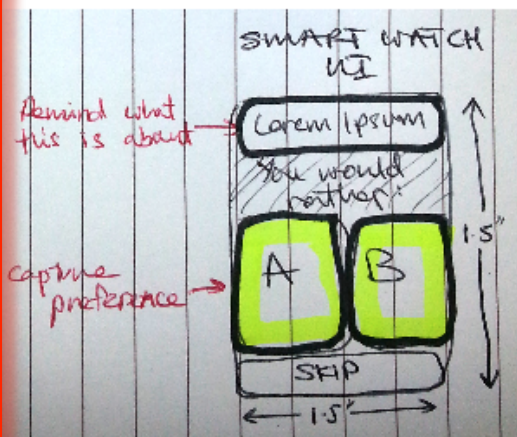 SMART WATCH
UI
Remind what
this is about
Lorem Ipsum
You would
rather:
1.5"
capture
preference
A
B
SKIP
1.5"